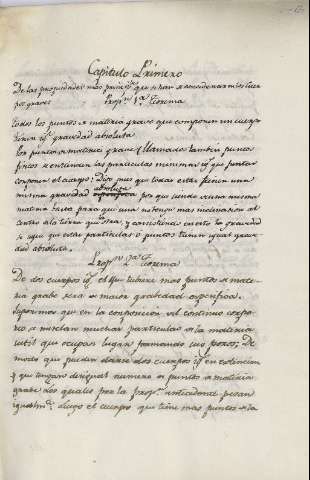 Capitulo Primero
De las propiedades mas princip.s que
por graves Prop.n 1.a Teorema
todos los puntos a materia grave que componen un cuerpo
tienen ig.l gravedad absoluta
los puntos a materia grave (llamados tambien puntos
fisicos se entienden las particulas minimas q.e puedan
componer el cuerpo: Digo pues que todas estas tienen una
misma gravedad absoluta por que siendo de una misma
materia basta para que una no tenga mas inclinacion al
centro de la tierra que otra, y consistiendo en esto la gravedad
se sigue que estas particulas o puntos tienen igual grave
dad absoluta.
Prop.n 2.a Teorema
De dos cuerpos ig.s el que tubiere mas puntos a mate
ria grabe sera de maior grabedad especifica.
Suponemos que en la composicion del continuo corpo
reo se mezclan muchas particulas de la materia
sutil que ocupan lugar formando sus poros: De
modo que pueden darse dos cuerpos ig.s en extencion
y que tengan desigual numero de puntos a materia
grabe los quales por la Prop.n antecedente pesan
igualm.te luego el cuerpo que tiene mas puntos de la